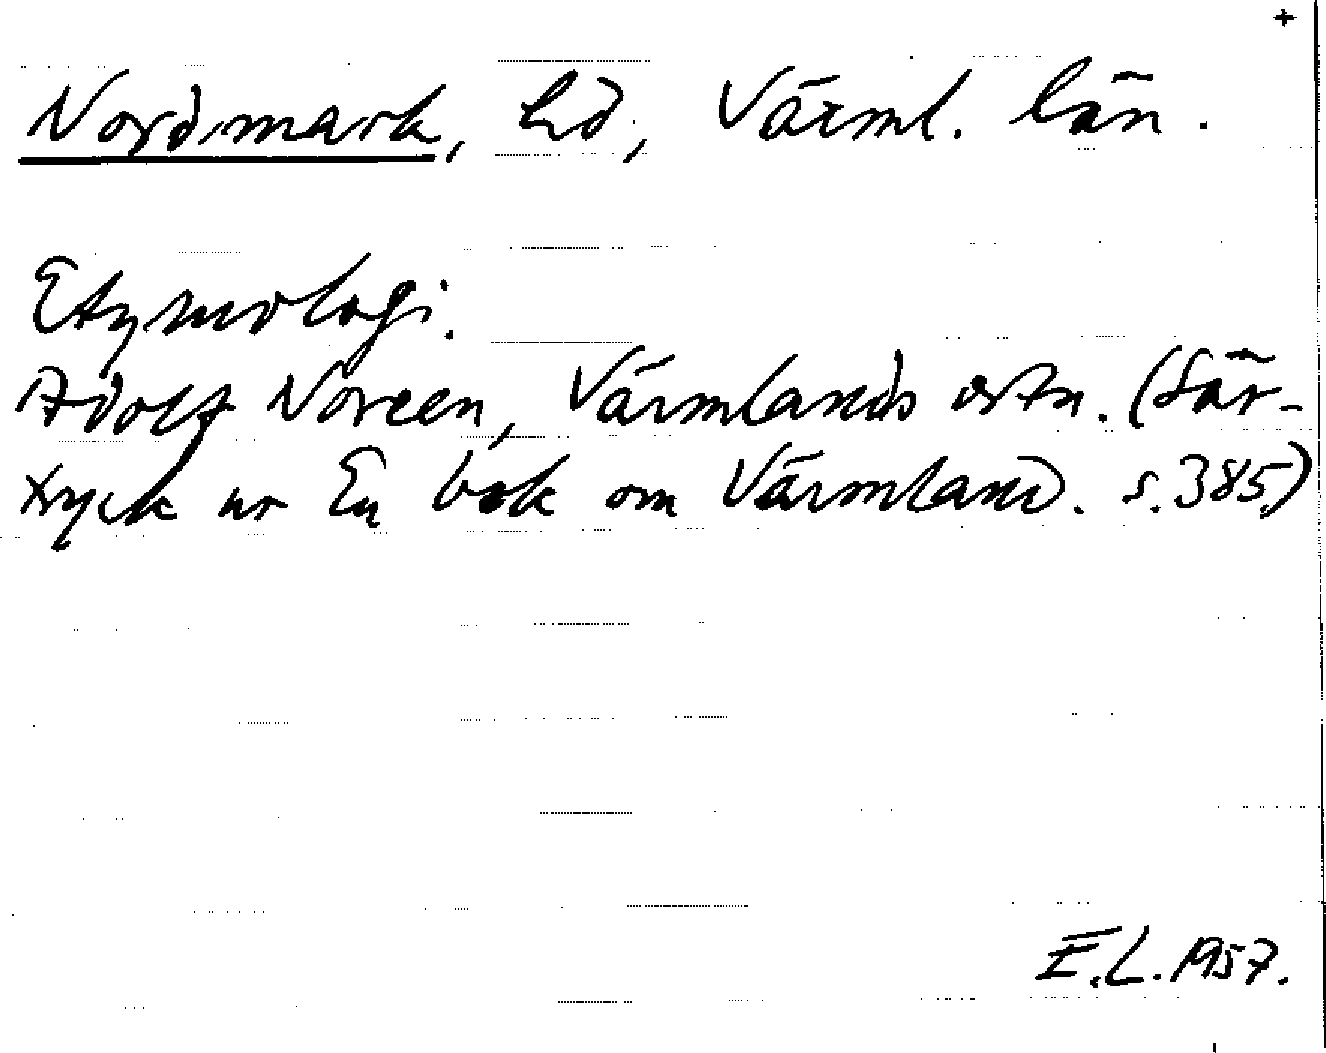 +
Nordmark, hd, Värml. län.
Etymologi.
Adolf Noreen, Värmlands ortn. (Sär-
tryck ur En bok om Värmland. s. 385.)
E.L. 1957.